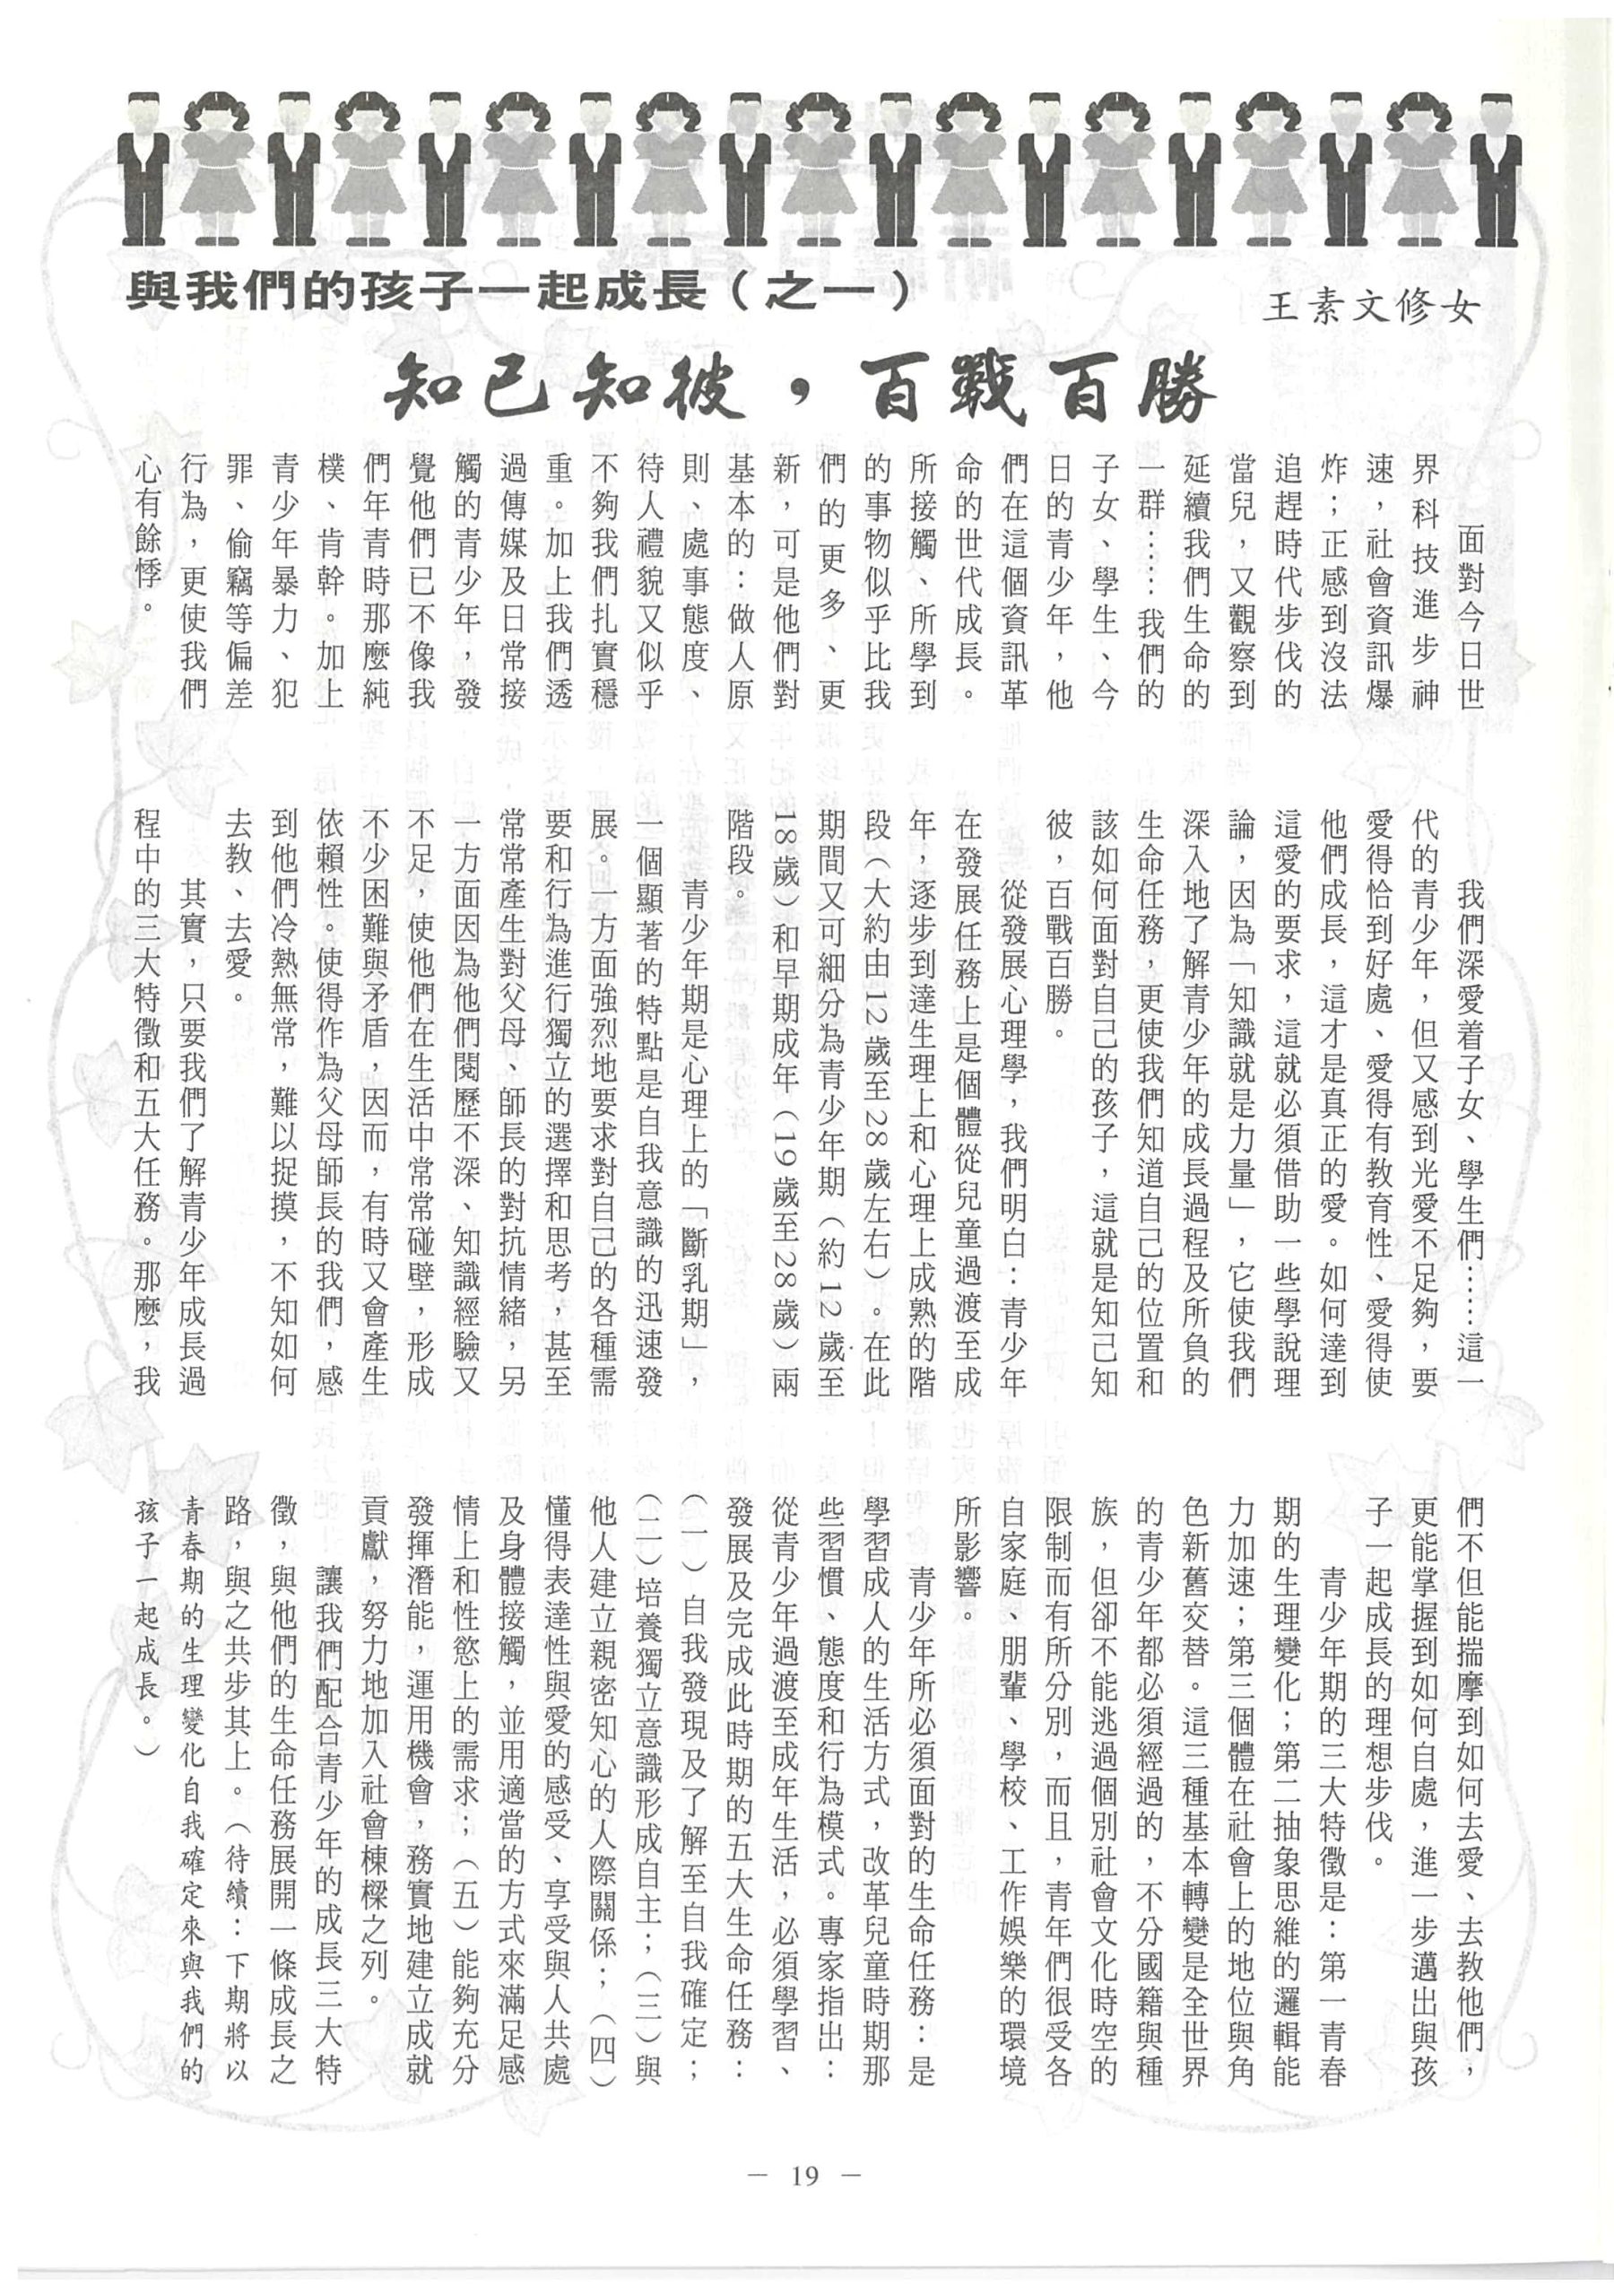 與我們的孩子一起成長（之一）
王素文修女
知己知彼，百戰百勝
面對今日世
界科技進步神
速，社會資訊爆
炸；正感到沒法
追趕時代步伐的
當兒，又觀察到
延續我們生命的
一群……我們的
子女、學生、今
日的青少年，他
們在這個資訊革
命的世代成長。
所接觸、所學到
的事物似乎比我
們的更多、更
新，可是他們對
基本的：做人原
則、處事態度、
待人禮貌又似乎
不夠我們扎實穩
重。加上我們透
過傳媒及日常接
觸的青少年，發
覺他們已不像我
們年青時那麼純
樸、肯幹。加上
青少年暴力、犯
罪、偷竊等偏差
行為，更使我們
心有餘悸。
我們深愛着子女、學生們……這一
代的青少年，但又感到光愛不足夠，要
愛得恰到好處、愛得有教育性、愛得使
他們成長，這才是真正的愛。如何達到
這愛的要求，這就必須借助一些學說理
論，因為「知識就是力量」，它使我們
深入地了解青少年的成長過程及所負的
生命任務，更使我們知道自己的位置和
該如何面對自己的孩子，這就是知己知
彼，百戰百勝。
從發展心理學，我們明白：青少年
在發展任務上是個體從兒童過渡至成
年，逐步到達生理上和心理上成熟的階
段（大約由12歲至28歲左右）。在此
期間又可細分為青少年期（約12歲至
18歲）和早期成年（19歲至28歲）兩
階段。
青少年期是心理上的「斷乳期」，
一個顯著的特點是自我意識的迅速發
展。一方面強烈地要求對自己的各種需
要和行為進行獨立的選擇和思考，甚至
常常產生對父母、師長的對抗情緒，另
一方面因為他們閱歷不深、知識經驗又
不足，使他們在生活中常常碰壁，形成
不少困難與矛盾，因而，有時又會產生
依賴性。使得作為父母師長的我們，感
到他們冷熱無常，難以捉摸，不知如何
去教、去愛。
其實，只要我們了解青少年成長過
程中的三大特徵和五大任務。那麼，我
們不但能揣摩到如何去愛、去教他們，
更能掌握到如何自處，進一步邁出與孩
子一起成長的理想步伐。
青少年期的三大特徵是：第一青春
期的生理變化；第二抽象思維的邏輯能
力加速；第三個體在社會上的地位與角
色新舊交替。這三種基本轉變是全世界
的青少年都必須經過的，不分國籍與種
族，但卻不能逃過個別社會文化時空的
限制而有所分別，而且，青年們很受各
自家庭、朋輩、學校、工作娛樂的環境
所影響。
青少年所必須面對的生命任務：是
學習成人的生活方式，改革兒童時期那
些習慣、態度和行為模式。專家指出：
從青少年過渡至成年生活，必須學習、
發展及完成此時期的五大生命任務：
（一）自我發現及了解至自我確定；
（二）培養獨立意識形成自主；（三）與
他人建立親密知心的人際關係；（四）
懂得表達性與愛的感受、享受與人共處
及身體接觸，並用適當的方式來滿足感
情上和性慾上的需求；（五）能夠充分
發揮潛能，運用機會，務實地建立成就
貢獻，努力地加入社會棟樑之列。
讓我們配合青少年的成長三大特
徵，與他們的生命任務展開一條成長之
路，與之共步其上。（待續：下期將以
青春期的生理變化自我確定來與我們的
孩子一起成長。）
— 19 —